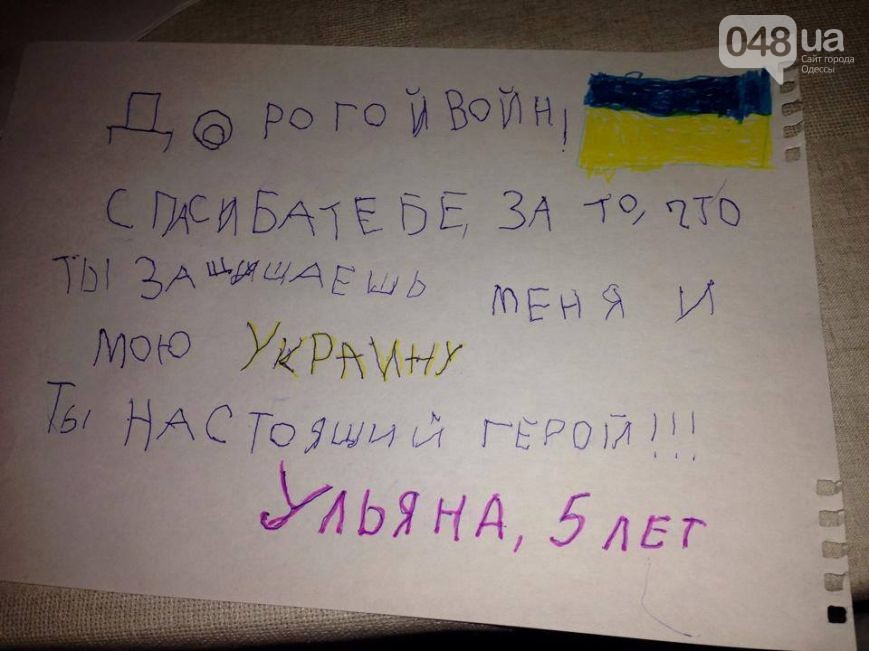 048 ua
Сайт города
Одессы
ДОРОГОЙ ВОЙН!
СПАСИБА ТЕБЕ, ЗА ТО, ЧТО
ТЫ ЗАЩИЩАЕШЬ МЕНЯ И
МОЮ УКРАИНУ
ТЫ НАСТОЯЩИЙ ГЕРОЙ!!!
УЛЬЯНА, 5 ЛЕТ